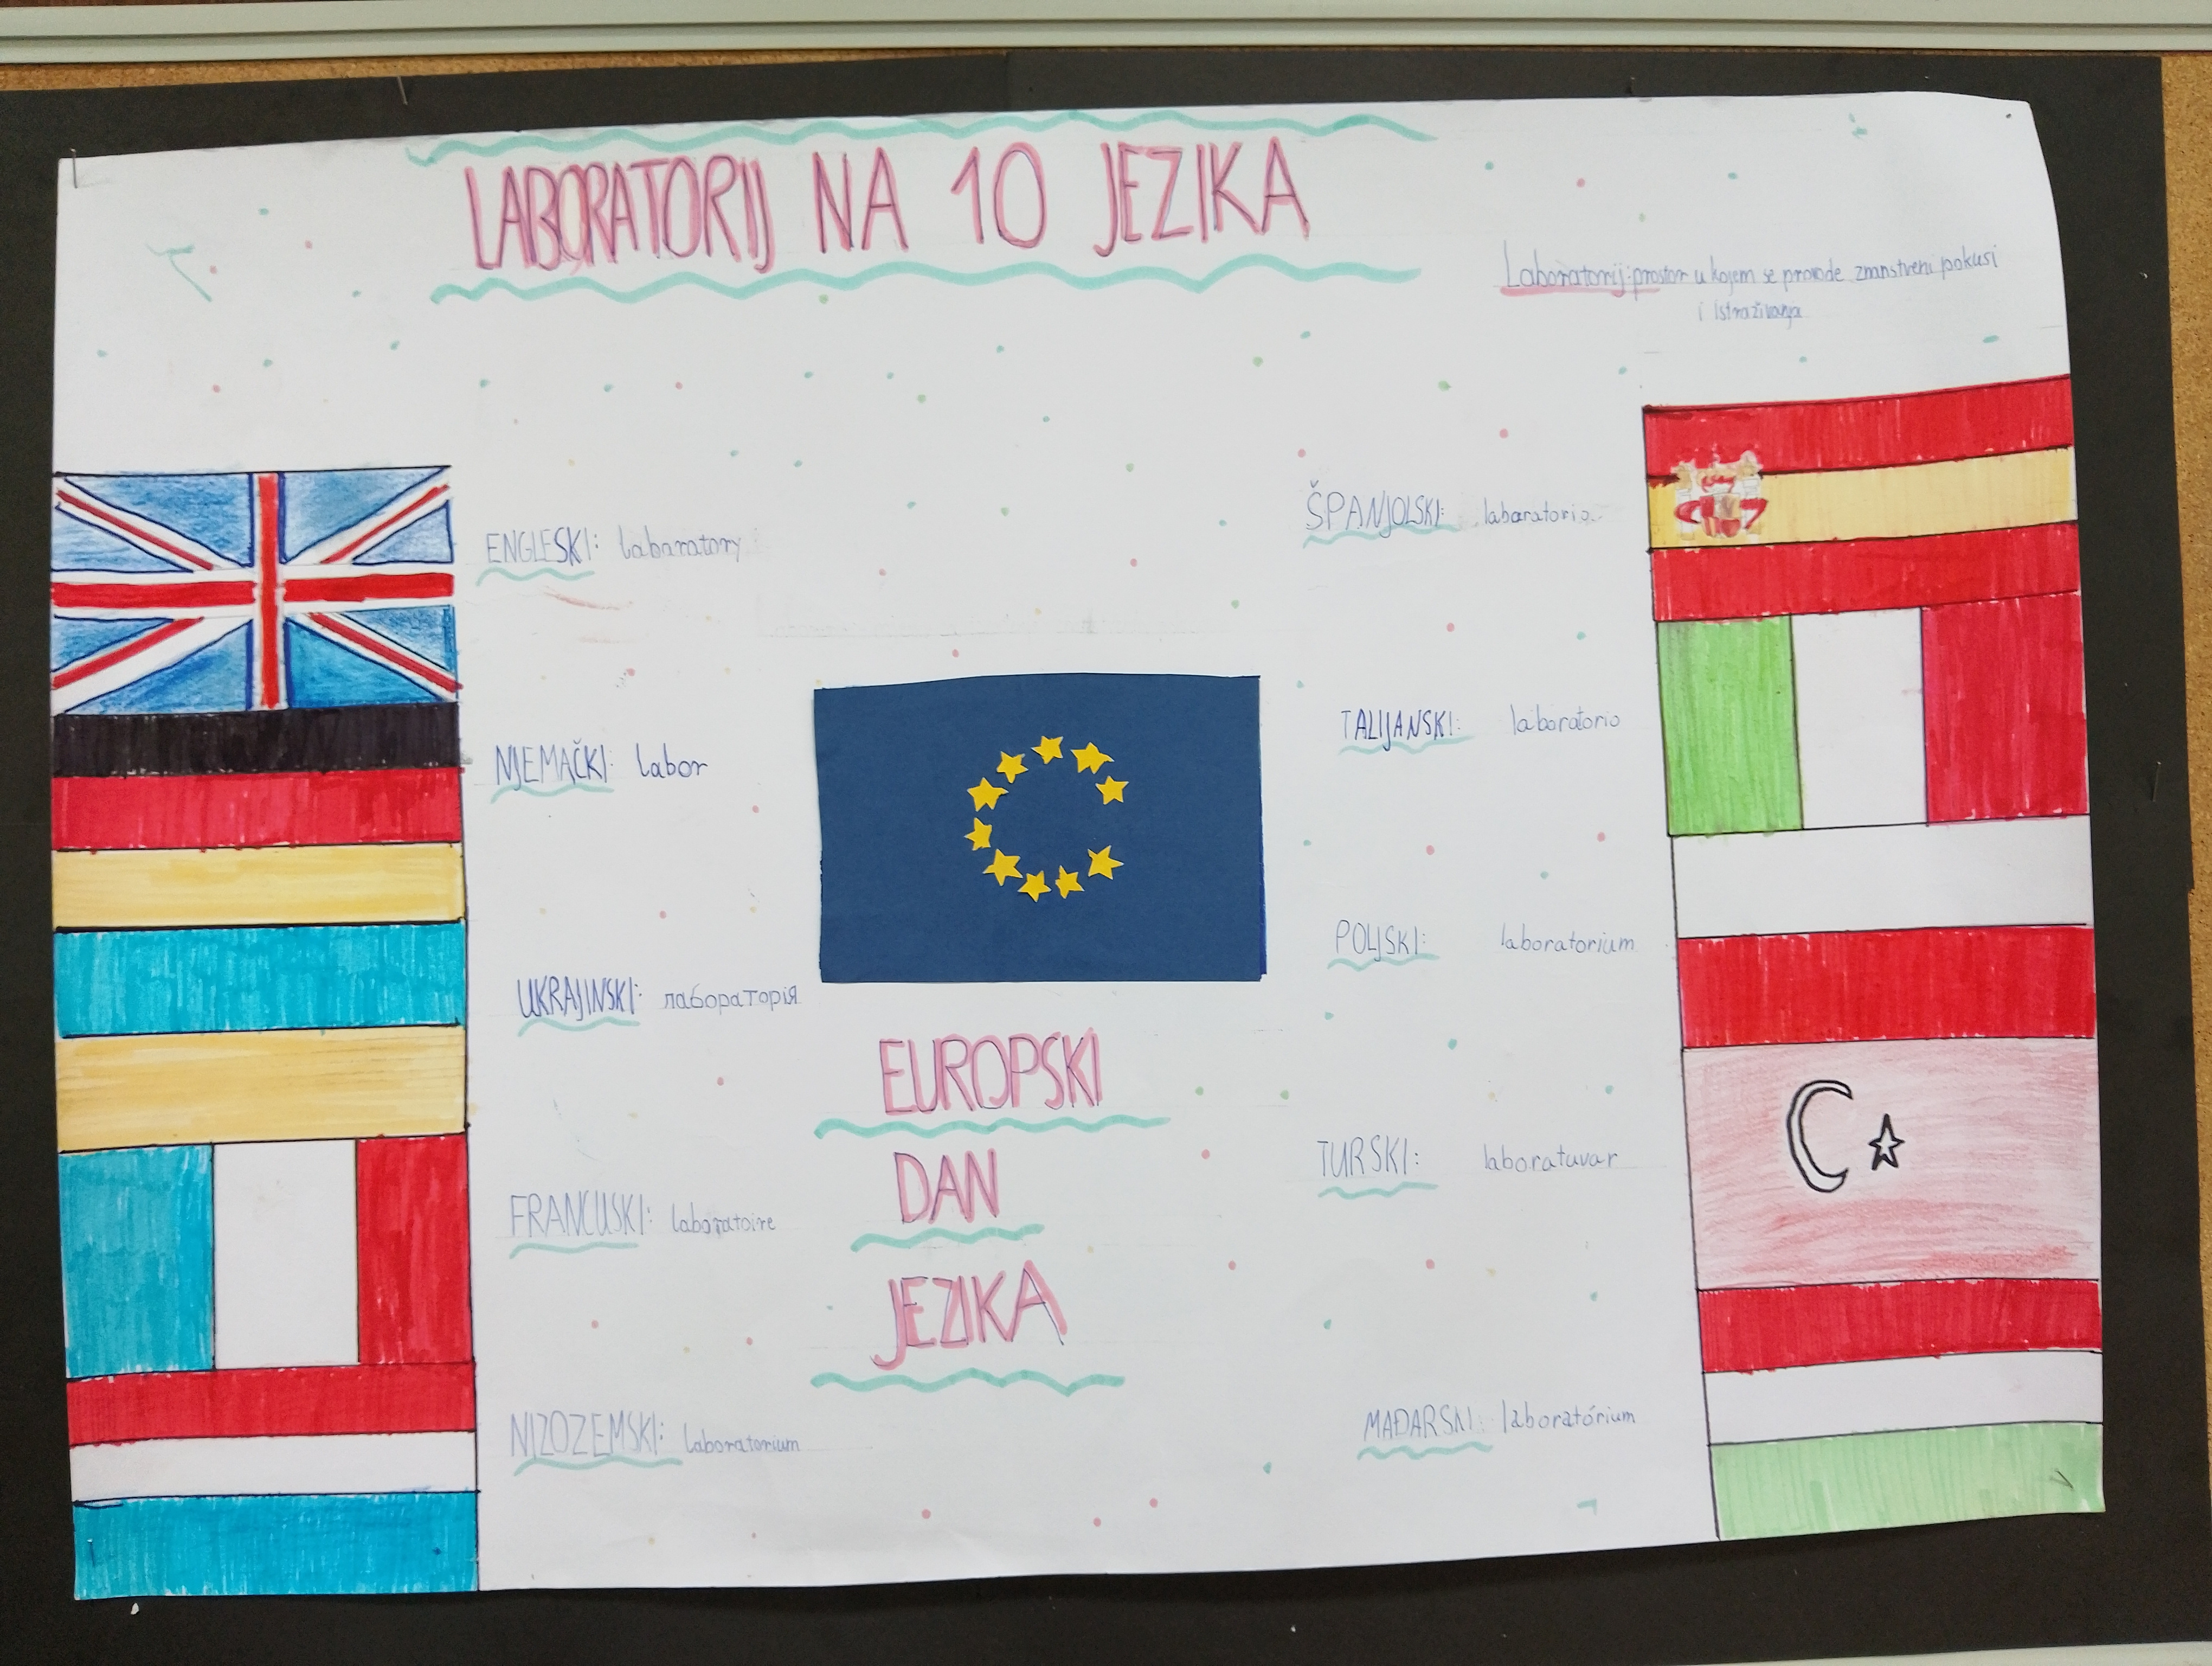 LABORATORIJ NA 10 JEZIKA
Laboratorij: prostor u kojem se provode znanstveni pokusi
i istraživanja
ENGLESKI: labaratory
NJEMAČKI: labor
UKRAJINSKI: лабораторія
FRANCUSKI: laboratoire
NIZOZEMSKI: laboratorium
EUROPSKI
DAN
JEZIKA
ŠPANJOLSKI: laboratorio
TALIJANSKI: laboratorio
POLJSKI: laboratorium
TURSKI: laboratuvar
MAĐARSKI: laboratórium